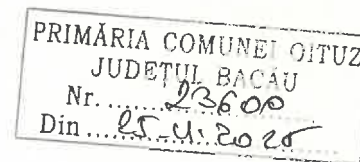 PRIMĂRIA COMUNEI OITUZ
JUDEȚUL BACĂU
Nr. ........23600
Din ....25.11.2025